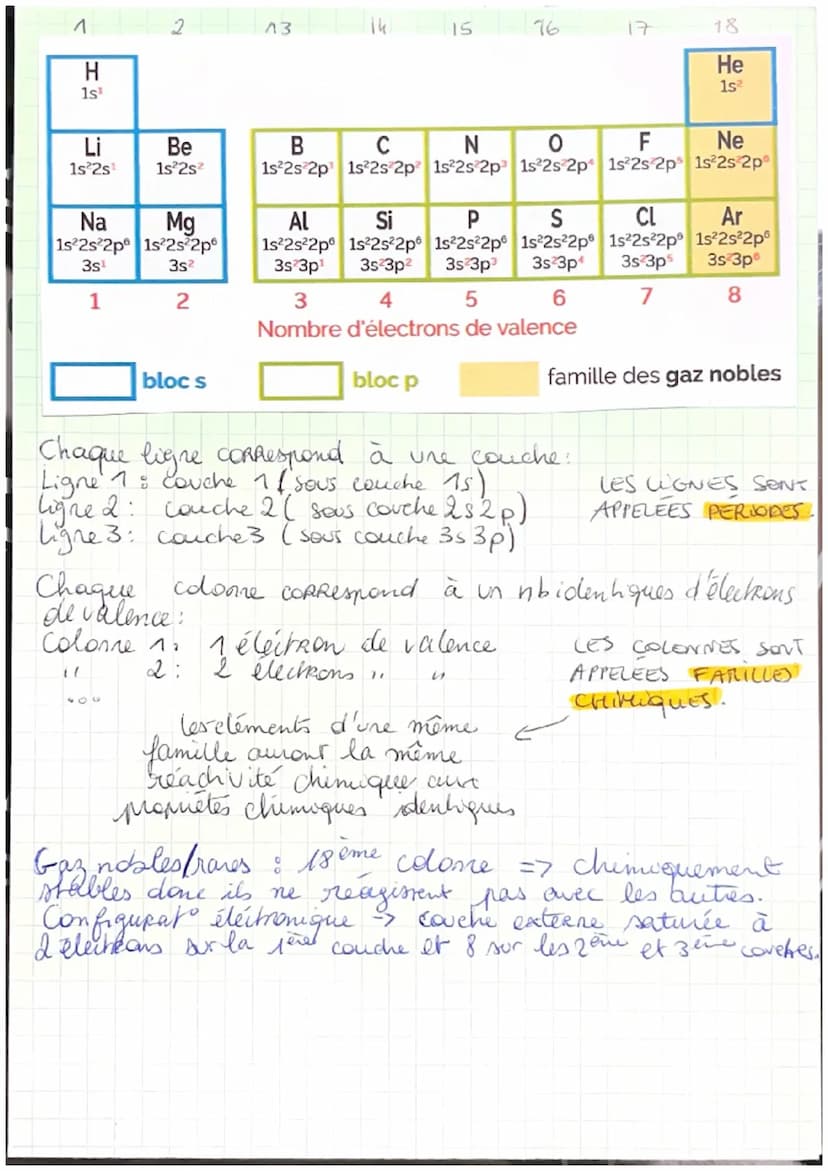 1 2 13 14 15 16 17 18
H He
1s¹ 1s²
Li Be B C N O F Ne
1s²2s¹ 1s²2s² 1s²2s²2p¹ 1s²2s²2p² 1s²2s²2p³ 1s²2s²2p⁴ 1s²2s²2p⁵ 1s²2s²2p⁶
Na Mg Al Si P S Cl Ar
1s²2s²2p⁶ 1s²2s²2p⁶ 1s²2s²2p⁶ 1s²2s²2p⁶ 1s²2s²2p⁶ 1s²2s²2p⁶ 1s²2s²2p⁶ 1s²2s²2p⁶
3s¹ 3s² 3s²3p¹ 3s²3p² 3s²3p³ 3s²3p⁴ 3s²3p⁵ 3s²3p⁶
1 2 3 4 5 6 7 8
Nombre d'électrons de valence
bloc s bloc p famille des gaz nobles
Chaque ligne correspond à une couche :
Ligne 1 : couche 1 ( sous couche 1s)
Ligne 2 : couche 2 ( sous couche 2s 2p)
Ligne 3 : couche 3 ( sous couche 3s 3p)
LES LIGNES SONT
APPELÉES PÉRIODES.
Chaque colonne correspond à un nb identiques d'électrons
de valence :
Colonne 1 : 1 électron de valence
" 2 : 2 électrons " "
...
LES COLONNES SONT
APPELÉES FAMILLES
CHIMIQUES.
les éléments d'une même
famille auront la même
réactivité chimique aux
propriétés chimiques identiques
Gaz nobles/rares : 18ème colonne => chimiquement
stables donc ils ne réagissent pas avec les autres.
Configurat° éléctronique -> couche externe saturée à
2 électrons sur la 1ère couche et 8 sur les 2ème et 3ème couches.